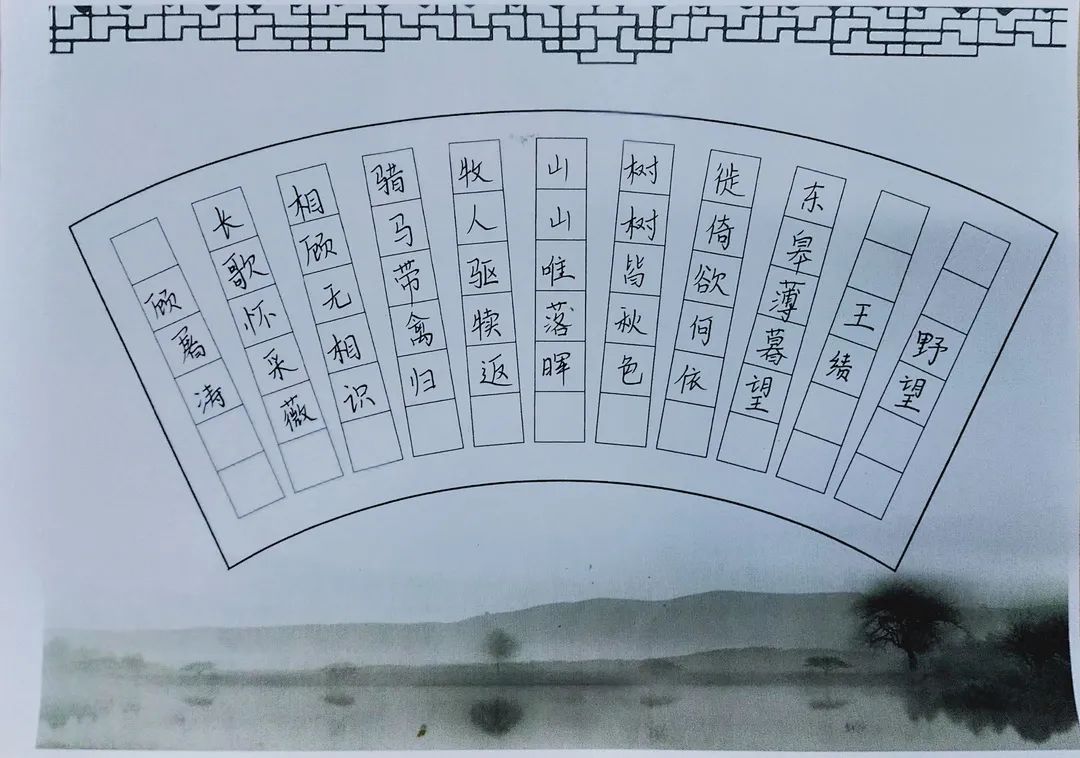 野望
王绩
东皋薄暮望
徙倚欲何依
树树皆秋色
山山唯落晖
牧人驱犊返
猎马带禽归
相顾无相识
长歌怀采薇
顾涛